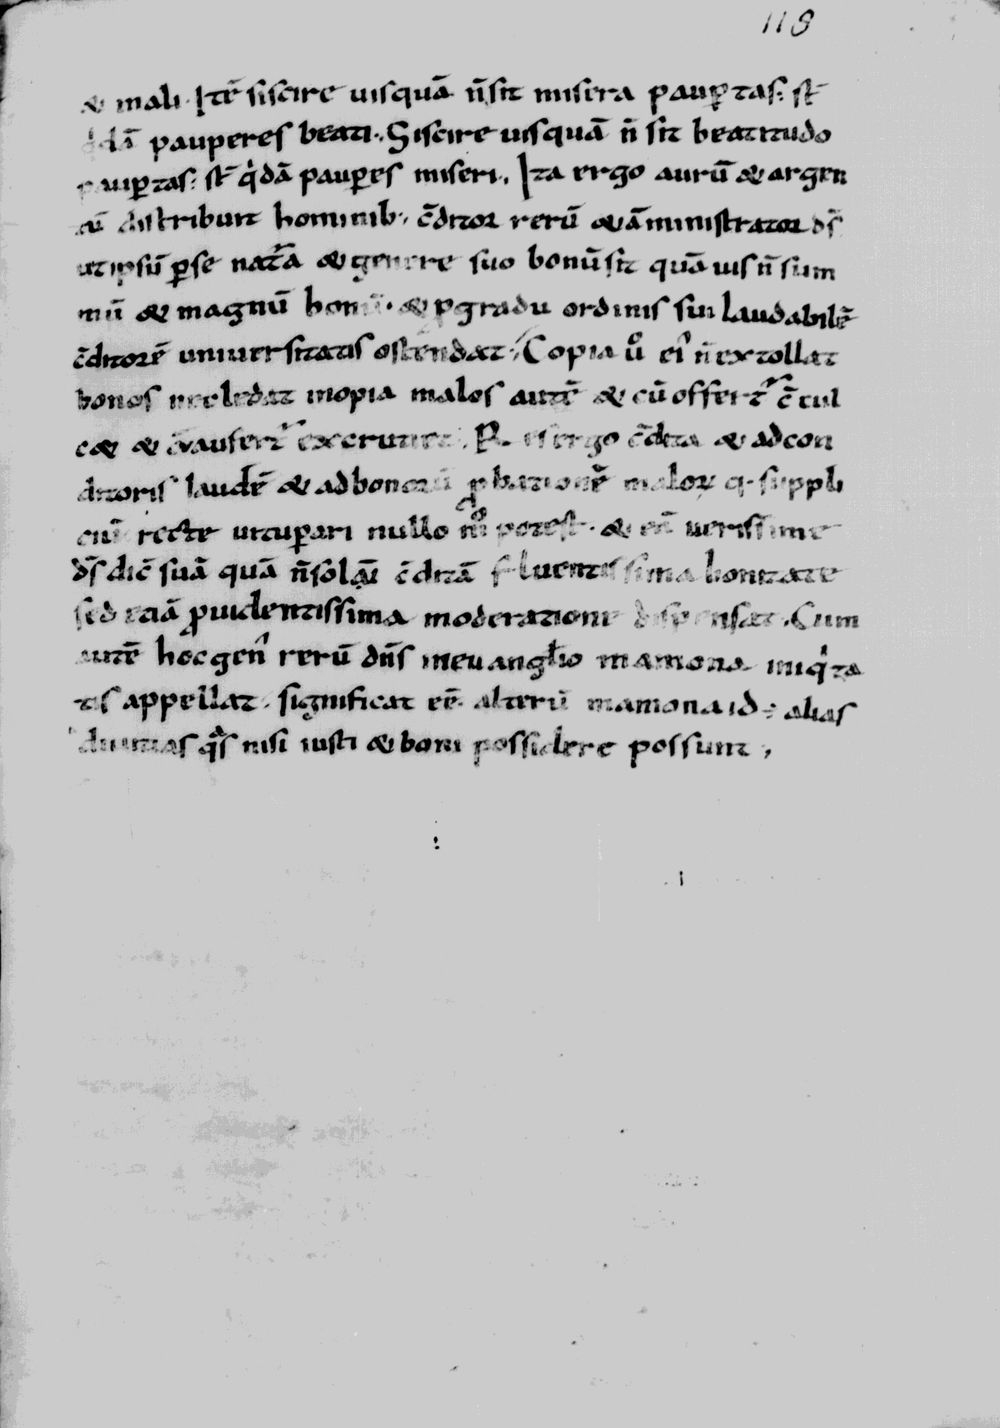 118
& mali. Itē si scire uis quā n̄ sit misera paup̄tas: st̄
dā pauperes beati. Si scire uis quā n̄ sit beatitudo
paup̄tas: st̄ q̇dā paup̄es miseri. Ita ergo aurū & argen
tū distribuit hominib; c̄ditor rerū & āministrator ds̄
ut ipsū p̄ se nat̄a & genere suo bonū sit quāuis n̄ sum
mū & magnū bonū. & p̄ gradu ordinis sui laudabilē
c̄ditorē uniuersitatis ostendat. Copia u̇ ei' n̄ extollat
bonos nec ledat inopia malos autē & cū offert̄ c̄ cul
c& & cū aufert̄ excruciet. Res ergo c̄dita & ad con
ditoris laudē & ad bonorū p̄bationē malorꝝ q. suppli
ciū recte uitup̄ari nullo m̊ potest. & eni uerissime
ds̄ dic̄ suā quā n̄ solū c̄ditā fluentissima bonitate
sed etiā p̄uidentissima moderatione dispensat. Cum
autē hoc gen' rerū dn̄s in euanglio mamona iniq̇ta
tis appellat. significat eē alterū mamona id ÷ alias
diuitias q̄s nisi iusti & boni possidere possunt;